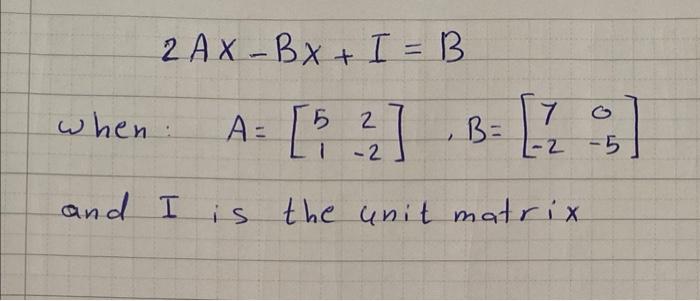 2AX - BX + I = B
when: A = [5 2; 1 -2], B = [7 0; -2 -5]
and I is the unit matrix